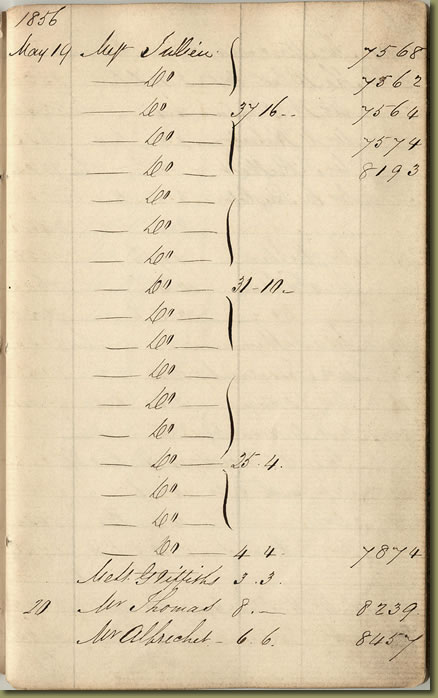 1856
May 19 Messrs Jullien 7568
Do 7562
Do 37 16 - - 7564
Do 7574
Do 8193
Do
Do
Do
Do 31 - 10 -
Do
Do
Do
Do
Do
Do 25 . 4 .
Do
Do
Do 4 4 . 7874
Messrs Griffiths 3 . 3 .
20 Mr Thomas 8 . — 8239
Mr Albrecht - 6 6 . 8457